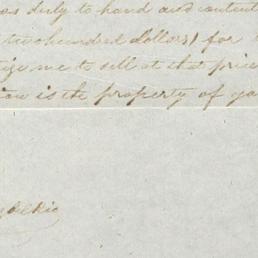 as duly to hand and content
two hundred dollars) for
me to sell at that price
is the property of